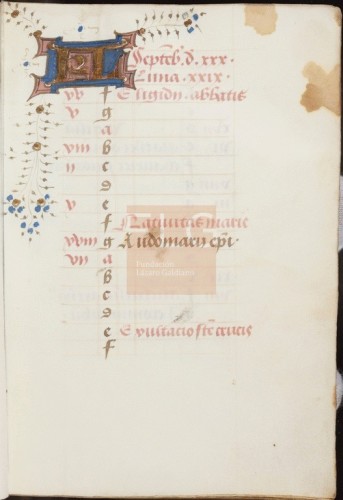 KL Septeb. d. xxx.
Luna. xxix.
xvi f S egidii. abbatis
v g
a
xiii b
ii c
d
x e
f Nativitas marie
xviii g Audomarii epi.
vii a
b
c
d
e Exultacio ste crucis
f
FLG
Fundación
Lázaro Galdiano